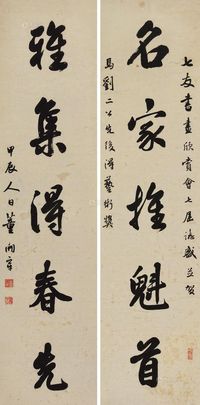 七友書畫欣賞會上屆誌盛並賀
名家推魁首
馬劉二公先後得藝術獎
雅集得春先
甲辰人日董開章